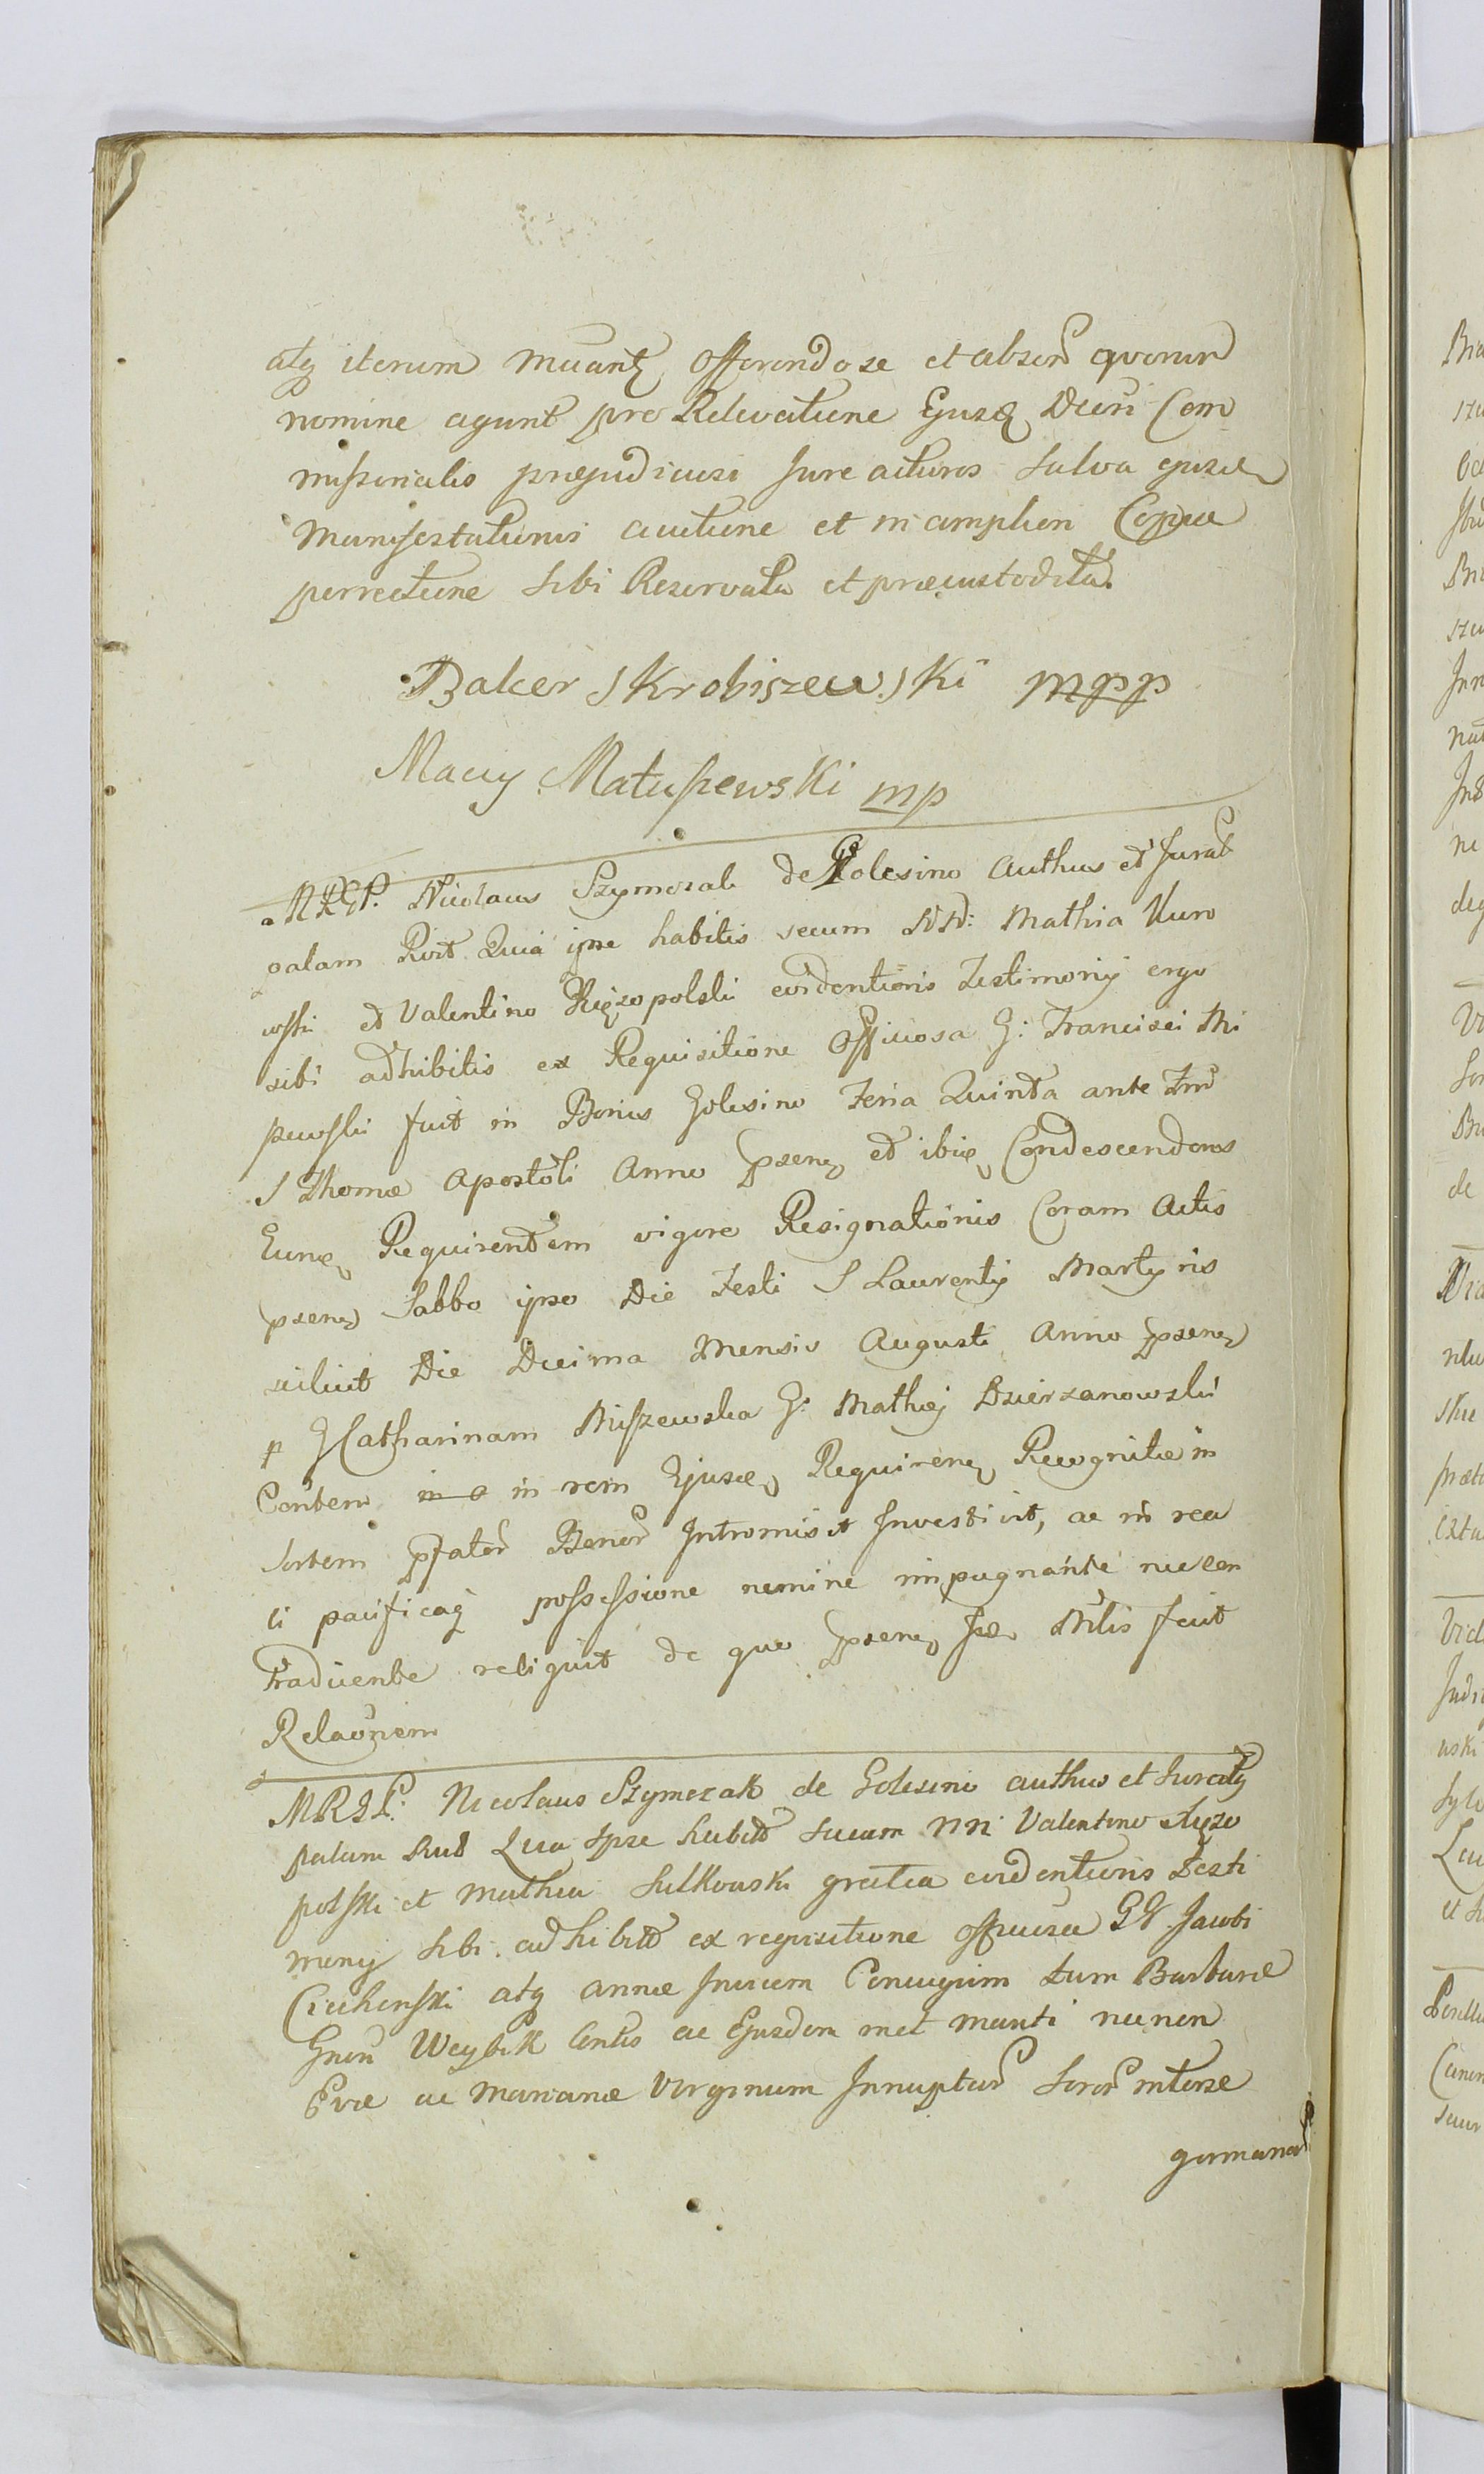 atq iterum Mẽantz offerendo se et absen quorum
nomine agunt pro Relevatione Ejusd Dicti Com
missorialis præjudiciosi Jure acturos Salva ejusd
Manifestationis auctione et in ampliori Copia
perrectione Sibi Reservata et præcustodita
Balcer Skrobiszewski mpp
Maciy Matuszewski mp
MRGP. Nicolaus Szymczak de Golesino Authus et Jurat
palam Rvit Quia ipse habitis secum NN: Mathia Kuro
wski et Valentino Xięzopolski evidentioris Testimonij ergo
sibi adhibitis ex Requisitione Officiosa G: Francisci Mi
szewski fuit in Bonis Golesino Feria Quinta ante Fm
S Thomæ Apostoli Anno psenq et ibiq Condescendens
Eunq Requirentem vigore Resignationis Coram Actis
psenq Sabbo ipso Die Festi S Laurentij Martyris
scilicit Die Decima Mensis Augusti Anno psenq
p G Catharinam Miszewska G: Mathiej Dzierzanowski
Contem in rem Ejusdq Requirenq Recognitæ in
Sortem pfator Bonor Intromisit Investivit, ac in rea
li pacificaq possessione nemine impugnante nec con
tradicente reliquit de quo psenq Jse Mlis fecit
Relaõnem
MRGP: Nicolaus Szymczak de Golesino authus et Juratq
palam Rvit Quia Ipse habitis Secum NN Valentino Xięzo
polski et Mathia Sulkowski gratia evidentioris Testi
monij Sibi adhibitis ex requisitione officiosa GG Jacobi
Ciechenski atq Annæ Invicem Conjugum tum Barbaræ
Gnosi Weybek Contis ac Ejusdem met Mariti necnon
Evæ ac Marianæ Virginum Innuptar Soror interse
germanar